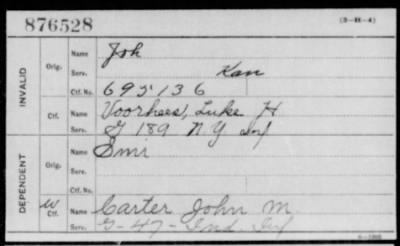 876528 (3-BK-4)
INVALID
Orig. Name Joh
Serv. Kan
Ctf. No. 695136
Ctf. Name Voorhees, Luke H
Serv. G 189 N.Y. Inf
DEPENDENT
Orig. Name Smi
Serv.
Ctf. No.
W Ctf. Name Carter John M.
Serv. G-47-Ind Inf